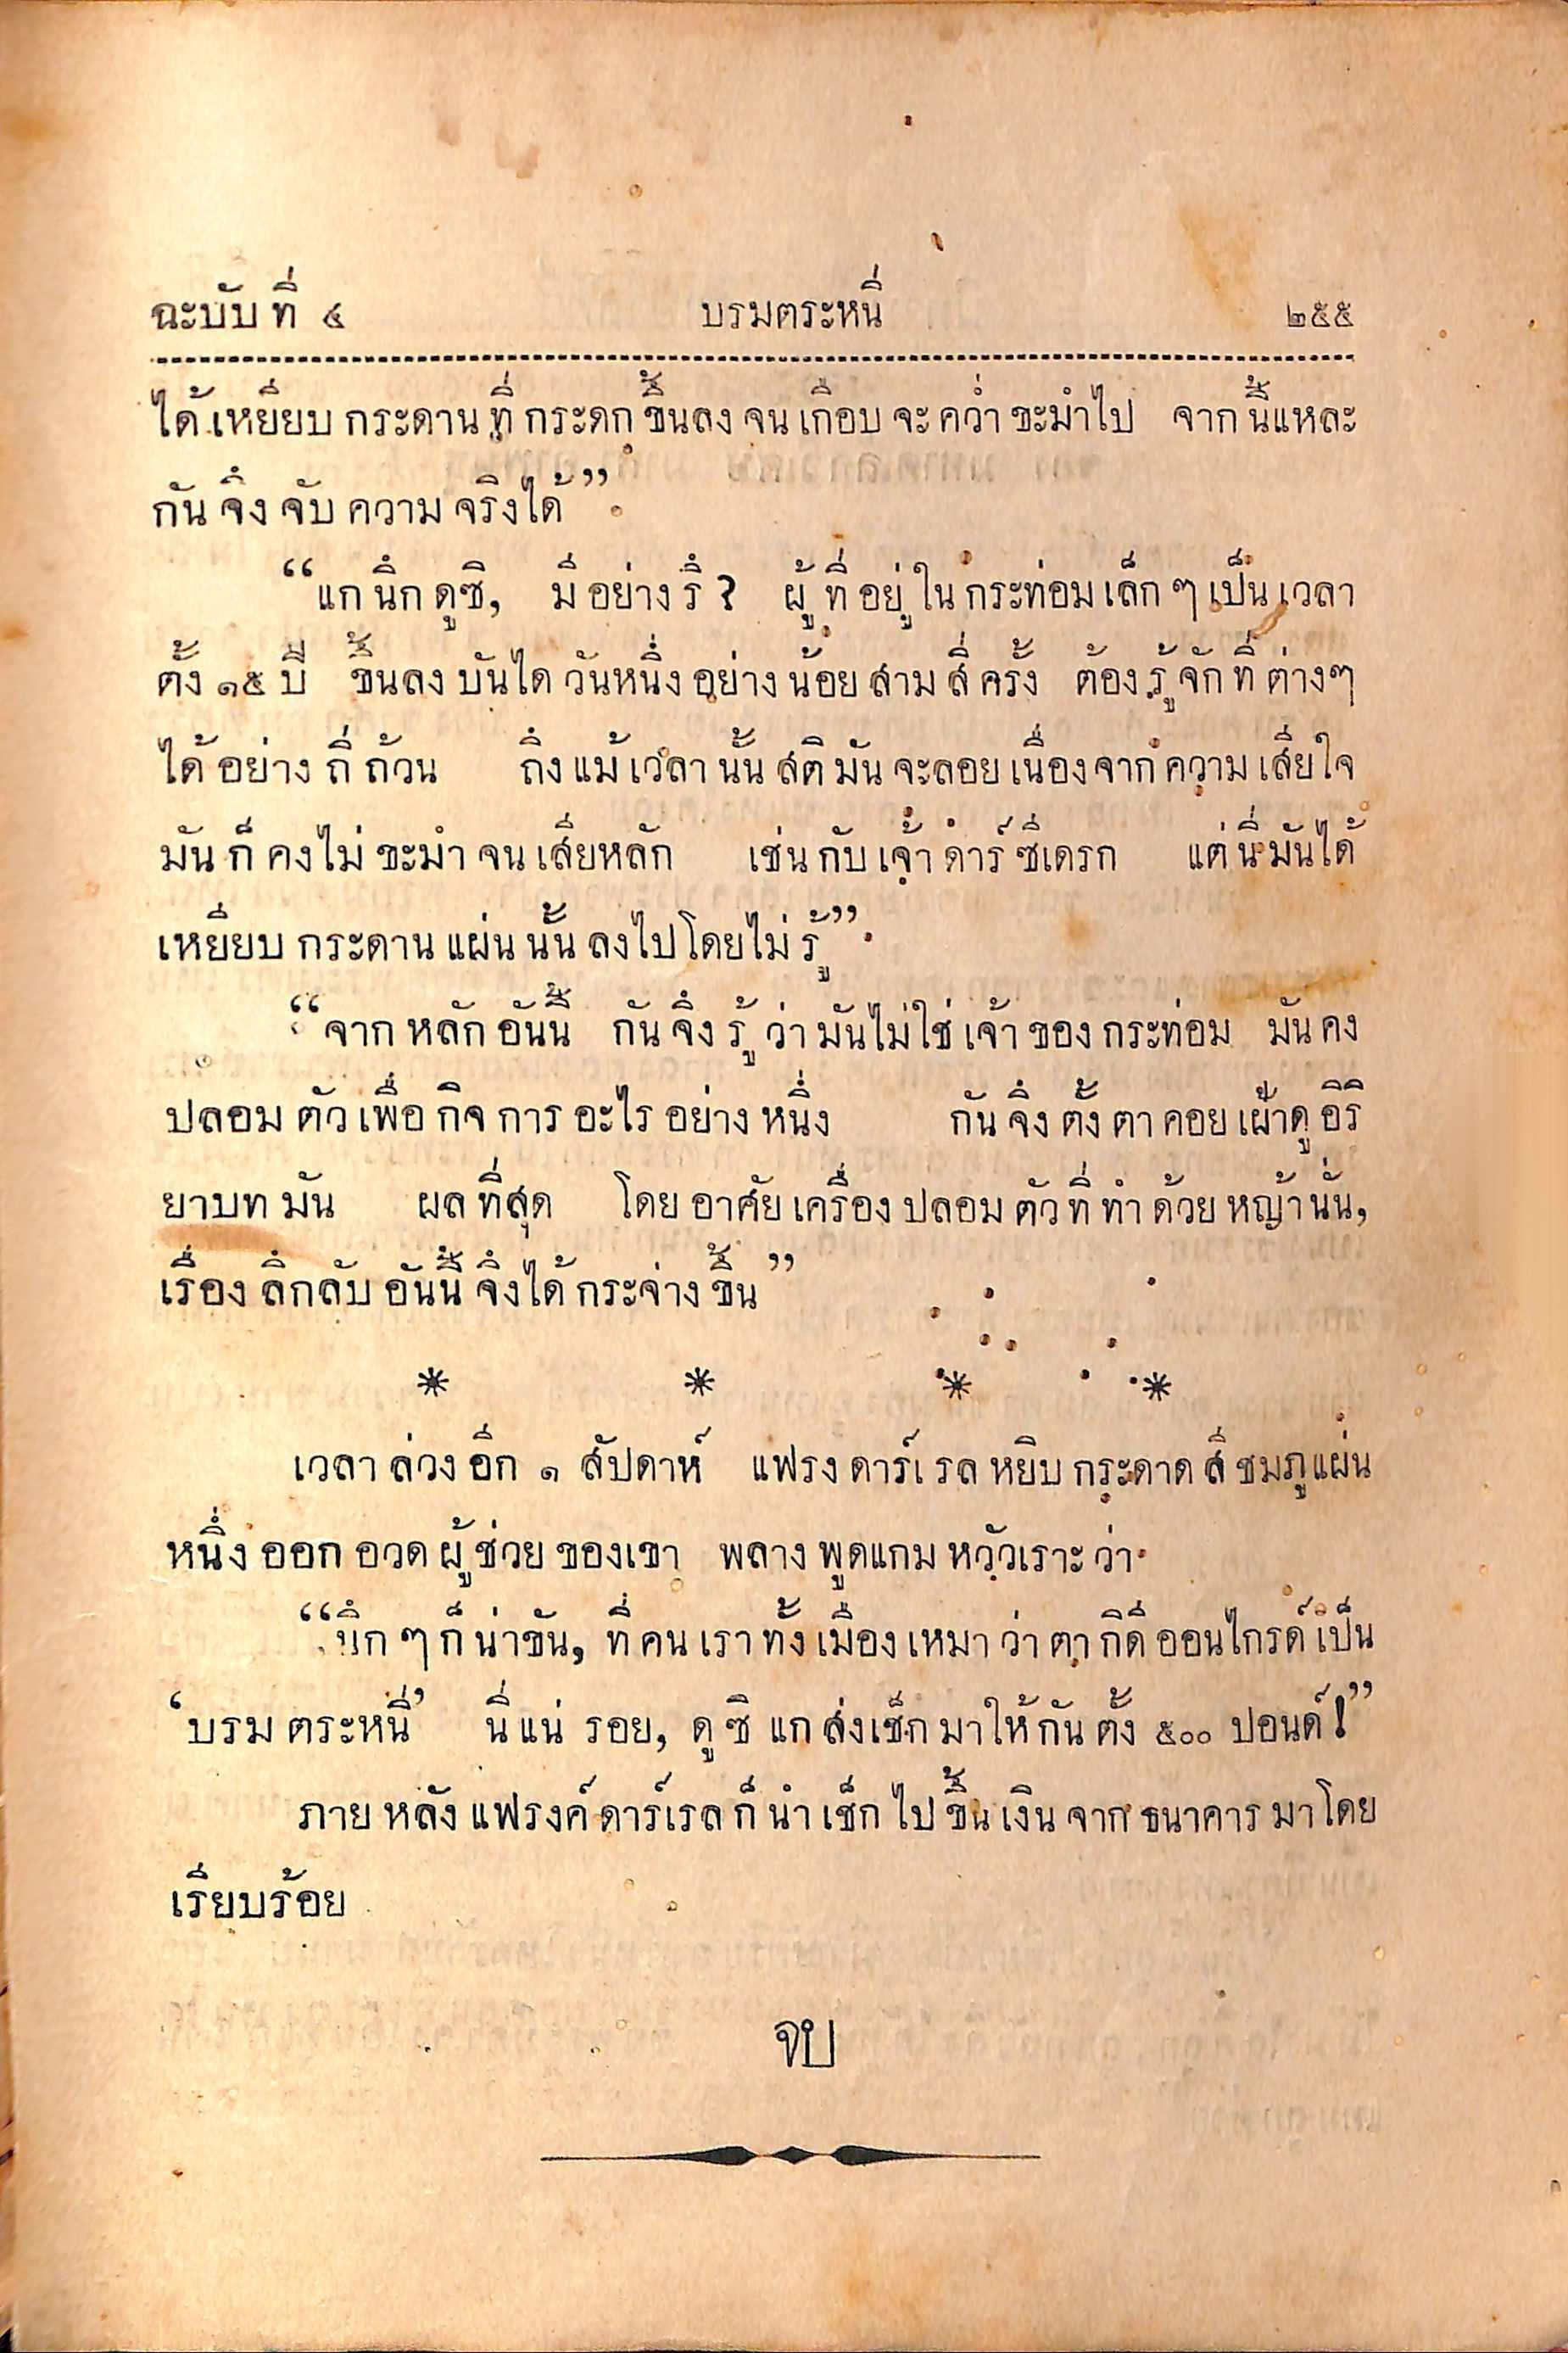 ฉะบับที่ ๔ บรมตระหนี่ ๒๕๕
ได้เหยียบกระดานที่กระดกขึ้นลงจนเกือบจะคว่ำขะมำไป จากนี้แหละ
กันจึงจับความจริงได้”
“แกนึกดูซิ, มีอย่างรึ? ผู้ที่อยู่ในกระท่อมเล็กๆเป็นเวลา
ตั้ง ๑๕ ปี ขึ้นลงบันไดวันหนึ่งอย่างน้อยสามสี่ครั้ง ต้องรู้จักที่ต่างๆ
ได้อย่างถี่ถ้วน ถึงแม้เวลานั้นสติมันจะลอยเนื่องจากความเสียใจ
มันก็คงไม่ขะมำจนเสียหลัก เช่นกับเจ้าดาร์ซีเดรก แต่นี่มันได้
เหยียบกระดานแผ่นนั้นลงไปโดยไม่รู้”
“จากหลักอันนี้ กันจึงรู้ว่ามันไม่ใช่เจ้าของกระท่อม มันคง
ปลอมตัวเพื่อกิจการอะไรอย่างหนึ่ง กันจึงตั้งตาคอยเฝ้าดูอิริ
ยาบทมัน ผลที่สุด โดยอาศัยเครื่องปลอมตัวที่ทำด้วยหญ้านั่น,
เรื่องลึกลับอันนี้จึงได้กระจ่างขึ้น”
* * * *
เวลาล่วงอีก ๑ สัปดาห์ แฟรงดาร์เรลหยิบกระดาดสีชมภูแผ่น
หนึ่งออกอวดผู้ช่วยของเขา พลางพูดแกมหวัวเราะว่า
“นึกๆก็น่าขัน, ที่คนเราทั้งเมืองเหมาว่าตากิดีออนไกรด์เป็น
‘บรมตระหนี่’ นี่แน่ รอย, ดูซิ แกส่งเช็กมาให้กันตั้ง ๕๐๐ ปอนด์!”
ภายหลังแฟรงค์ดาร์เรลก็นำเช็กไปขึ้นเงินจากธนาคารมาโดย
เรียบร้อย
จบ